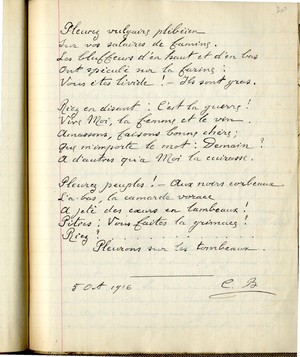 Pleurez vulgaire plébéien
Sur vos salaires de famine.
Les bluffeurs d'en haut et d'en bas
Ont spéculé sur la farine ;
Vous êtes livide ! — Ils sont gras.
Riez en disant : C'est la guerre !
Vive Moi, la femme et le vin —
Amassons, faisons bonne chère ;
Que m'importe le mot : Demain ?
A d'autres qu'à Moi la cuirasse.
Pleurez peuples ! — Aux noirs corbeaux
Là-bas, la camarde vorace
A jeté des cœurs en lambeaux !
Pitres ! Vous faites la grimace ;
Riez !
Pleurons sur les tombeaux.
5 Oct 1916
C. B